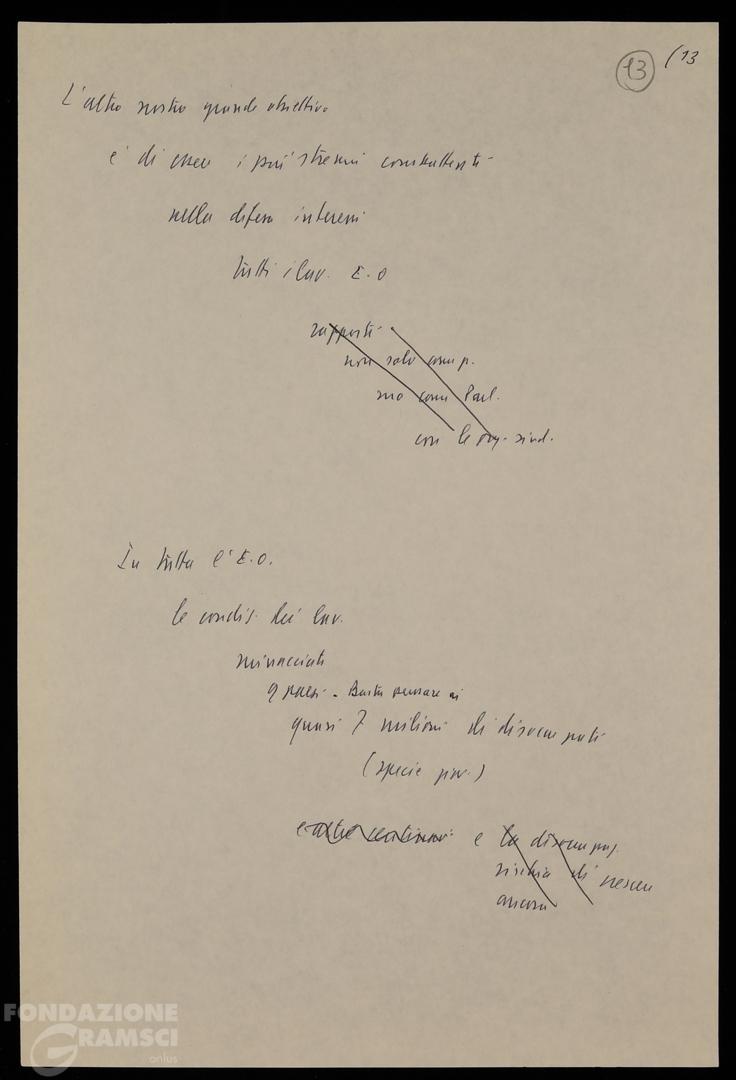 13 (13
L'altro nostro grande obiettivo
è di essere i più strenui combattenti
nella difesa interessi
tutti i lav. E.O
rapporti
non solo comp.
ma con Parl.
con le org. sind.
In tutta l'E.O.
le condiz. dei lav.
minacciate
9 paesi - Basta pensare ai
quasi 7 milioni di disoccupati
(specie giov.)
e altre centinaia e la disoccupaz.
rischia di crescere
ancora
FONDAZIONE
GRAMSCI
onlus